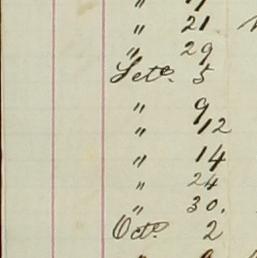 " 21
" 29
Sete. 5
" 9
" 12
" 14
" 24
" 30.
Octo. 2